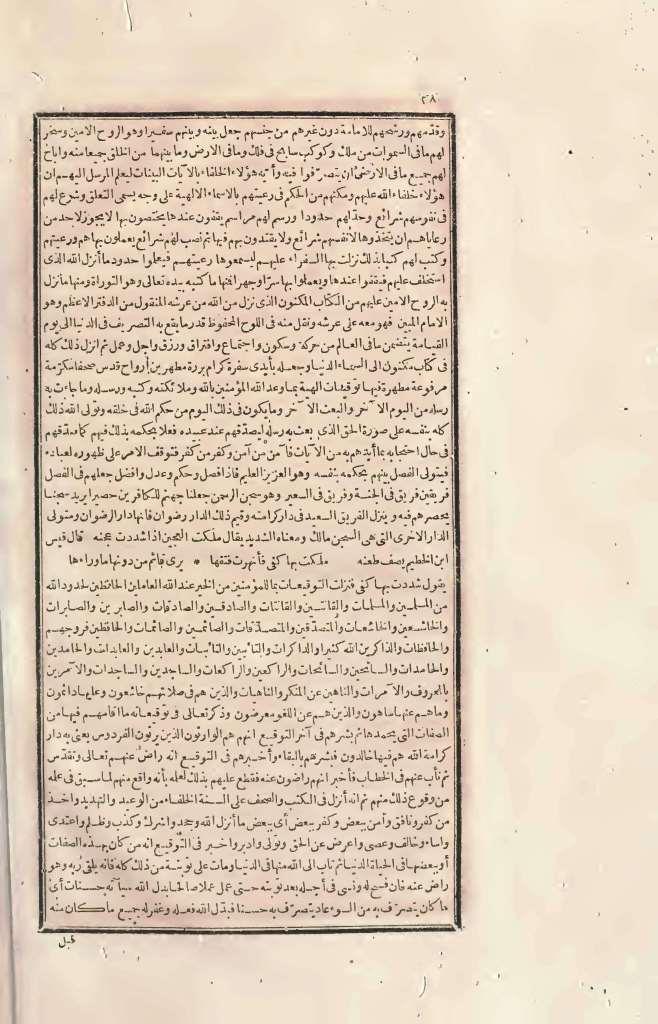 ٣٨
وقدّمهم ورشحهم للامامة دون غيرهم من جنسهم جعل بينه وبينهم سفيرا وهو الروح الامين وسخر
لهم ما فى السموات من ملك وكوكب سابح فى فلك وما فى الارض وما بينهما من الخلق جميعا منه واباح
لهم جميع ما فى الارض ان يتصرّفوا فيه وأيد هؤلاء الخلفاء بالآيات البينات ليعلم المرسل اليهم ان
هؤلاء خلفاء الله عليهم ومكنهم من الحكم فى رعيتهم بالاسماء الالهية على وجه يسمى التعلق وشرع لهم
فى نفوسهم شرائع وحدّلهم حدودا ورسم لهم مراسم يقفون عندها يختصون بها لا يجوز لاحد من
رعاياهم ان يتخذوها لانفسهم شرائع ولا يقتدون بهم فيها ثم نصب لهم شرائع يعملون بها هم ورعيتهم
وكتب لهم كتبا بذلك نزلت بها السفراء عليهم ليسمعوها رعيتهم فيعلموا حدود ما أنزل الله الذى
استخلف عليهم فيقفوا عندها ويعملوا بها سرّا وجهرا فنها ما كتبه بيده تعالى وهو التوراة ومنها ما نزل
به الروح الامين عليهم من الكتاب المكنون الذى نزل من الله من عرشه المنقول من الدفتر الاعظم وهو
الامام المبين فهو معه على عرشه ونقل منه فى اللوح المحفوظ قدر ما يقع به التصريف فى الدنيا الى يوم
القيامة يتضمن ما فى العالم من حركة وسكون واجتماع وافتراق ورزق واجل وعمل ثم انزل ذلك كله
فى كتاب مكنون الى السماء الدنيا وجعله بأيدى سفرة كرام بررة مطهرين أرواح قدس صحفا مكرّمة
مرفوعة مطهرة فيها توقيعات الهية بما وعد الله المؤمنين بالله وملائكته وكتبه ورسله وما جاءت به
رسله من اليوم الآخر والبعث الآخر وما يكون فى ذلك اليوم من حكم الله فى خلقه وتولى الله ذلك
كله بنفسه على صورة الحق الذى بعث به رسله ليصدّقهم عند عبيده فعلا بحكمه بذلك فيهم كما صدّقهم
فى حال احتجابه بما أيدهم به من الآيات فآمن من آمن وكفر من كفر فتوقف الامر على ظهوره لعباده
فيتولى الفصل بينهم بحكمه بنفسه وهو العزيز العليم فاذا فصل وحكم وعدل وافضل جعلهم فى الفصل
فريقين فريق فى الجنة وفريق فى السعير وهو سجن الرحمن جعلنا جهنم للكافرين حصيرا يريد سجنا
يحصرهم فيه وينزل الفريق السعيد فى دار كرامته وقيم ذلك الدار رضوان فانها دار الرضوان ومتولى
الدار الاخرى التى هى السجن مالك ومعناه الشديد يقال ملكت العجين اذا شددت عجنه قال قيس
ابن الخطيم يصف طعنه ملكت بها كفى فأنهرت فتقها * يرى قائم من دونها ما وراءها
يقول شددت بها كفى فنزلت التوقيعات بما للمؤمنين من الخير عند الله العاملين الحافظين لحدود الله
من المسلمين والمسلمات والقانتين والقانتات والصادقين والصادقات والصابرين والصابرات
والخاشعين والخاشعات والمتصدّقين والمتصدّقات والصائمين والصائمات والحافظين فروجهم
والحافظات والذاكرين الله كثيرا والذاكرات والتائبين والتائبات والعابدين والعابدات والحامدين
والحامدات والسائحين والسائحات والراكعين والراكعات والساجدين والساجدات والآمرين
بالمعروف والآمرات والناهين عن المنكر والناهيات والذين هم فى صلاتهم خاشعون وعليها دائمون
وما هم عنها ساهون والذين هم عن اللغو معرضون وذكر تعالى فى توقيعاته ما أقامهم فيها من
الصفات التى يحمدها ثم بشرهم فى آخر التوقيع انهم هم الوارثون الذين يرثون الفردوس يعنى به دار
كرامة الله هم فيها خالدون فبشرهم بالبقاء وأخبرهم فى التوقيع انه راض عنهم تعالى وتقدّس
ثم ناب عنهم فى الخطاب فأخبر انهم راضون عنه فقطع عليهم بذلك لعلمه بأنه واقع منهم لما سبق فى علمه
من وقوع ذلك منهم ثم انه أنزل فى الكتب والصحف على ألسنة الخلفاء من الوعيد والتهديد وأخذ
من كفر ونافق وآمن ببعض وكفر ببعض أى ببعض ما أنزل الله وجحد واشرك وكذب وظلم واعتدى
وأساء وخالف وعصى واعرض عن الحق وتولى وادبر واخبر فى التوقيع انه من كان بهذه الصفات
أو بعضها فى الحياة الدنيا ثم تاب الى الله منها فى الدنيا ومات على توبة من ذلك كله فانه يلقى ربه وهو
راض عنه فان فسح له ونسى فى أجله بعد توبته حتى عمل عملا صالحا بدل الله سيآته حسنات أى
ما كان يتصرّف به من السوء عاد يتصرّف به حسنا فبدّل الله فعله وغفر له جميع ما كان منه
قبل